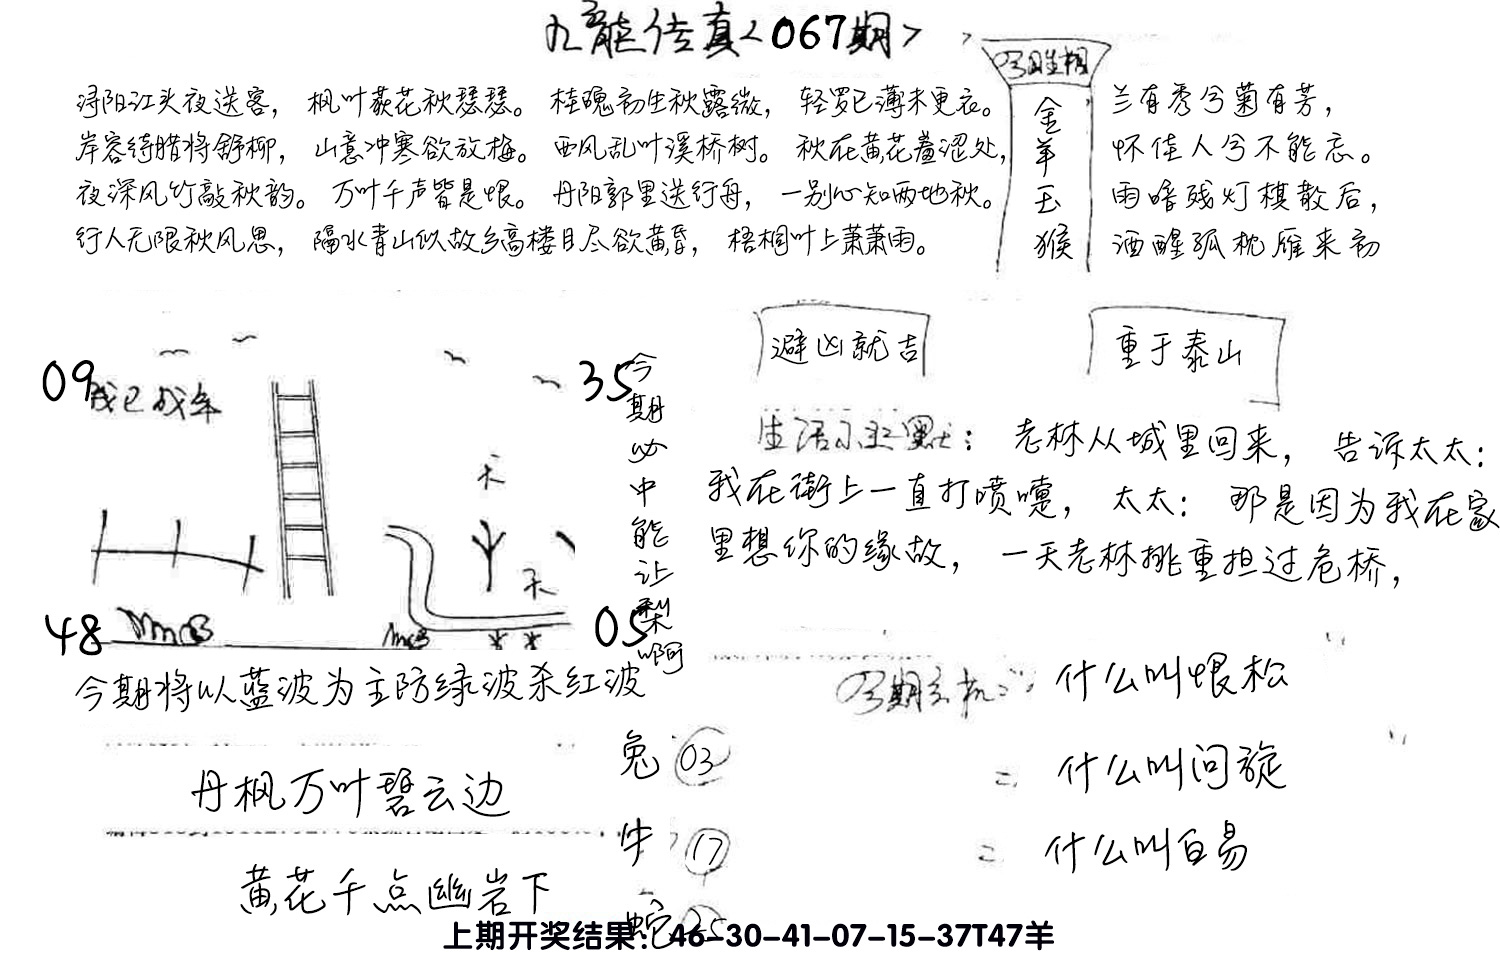 九龍传真<067期>
浔阳江头夜送客， 枫叶荻花秋瑟瑟。 桂魄初生秋露微， 轻罗已薄未更衣。
岸容待腊将舒柳， 山意冲寒欲放梅。 西风乱叶溪桥树。 秋在黄花羞涩处，
夜深风竹敲秋韵。 万叶千声皆是恨。 丹阳郭里送行舟， 一别心知两地秋。
行人无限秋风思， 隔水青山似故乡高楼目尽欲黄昏， 梧桐叶上萧萧雨。
金
羊
玉
猴
兰有秀兮菊有芳，
怀佳人兮不能忘。
雨暗残灯棋散后，
酒醒孤枕雁来初
09
35
天
天
48
05
今
期
必
中
能
让
梨
啊
今期将以蓝波为主防绿波杀红波
避凶就吉
重于泰山
生活小幽默： 老林从城里回来， 告诉太太：
我在街上一直打喷嚏， 太太： 那是因为我在家
里想你的缘故， 一天老林挑重担过危桥，
丹枫万叶碧云边
黄花千点幽岩下
兔 03
牛 17
蛇 25
什么叫恨松
= 什么叫问旋
= 什么叫白易
上期开奖结果：46-30-41-07-15-37T47羊